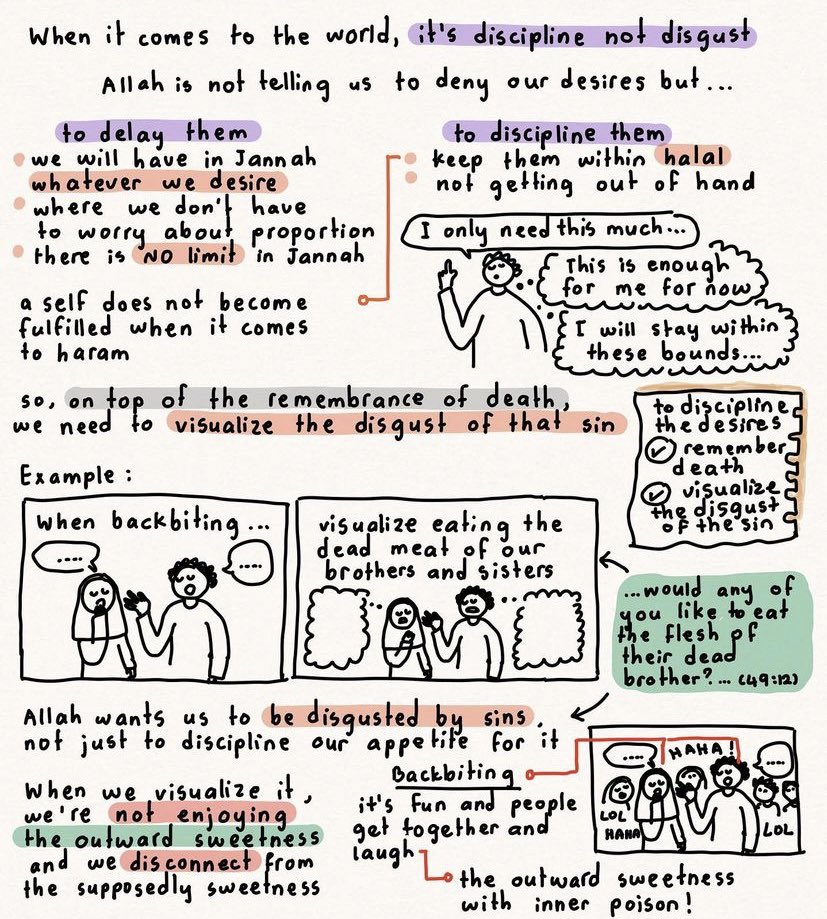 When it comes to the world, it's discipline not disgust
Allah is not telling us to deny our desires but...
to delay them
we will have in Jannah
whatever we desire
where we don't have
to worry about proportion
there is NO limit in Jannah
a self does not become
fulfilled when it comes
to haram
to discipline them
keep them within halal
not getting out of hand
I only need this much...
This is enough
for me for now
I will stay within
these bounds...
so, on top of the remembrance of death,
we need to visualize the disgust of that sin
to discipline
the desires
remember
death
visualize
the disgust
of the sin
Example:
When backbiting...
....
....
visualize eating the
dead meat of our
brothers and sisters
...would any of
you like to eat
the flesh of
their dead
brother?... (49:12)
Allah wants us to be disgusted by sins,
not just to discipline our appetite for it
When we visualize it,
we're not enjoying
the outward sweetness
and we disconnect from
the supposedly sweetness
Backbiting
it's fun and people
get together and
laugh
the outward sweetness
with inner poison!
....
HAHA!
....
LOL
HAHA
LOL